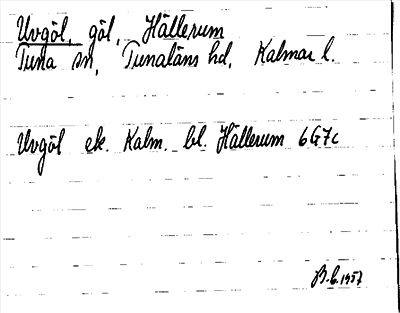 Uvgöl, göl, Hällerum
Tuna sn, Tunaläns hd, Kalmar l.
Uvgöl ek. Kalm. bl. Hällerum 6G7c
B.C. 1957